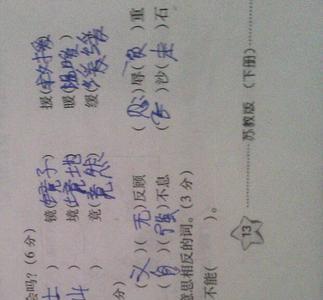 会吗? (6分)
) 镜(镜子) 援(
) 境(境地) 暖(温暖)
) 竟(竟然) 缓(缓缓)
分)
(义)(无)反顾 (忍)辱(负)重
(自)(强)不息 (飞)沙(走)石
意思相反的词。(3分)
不能( )。
13 苏教版 (下册)